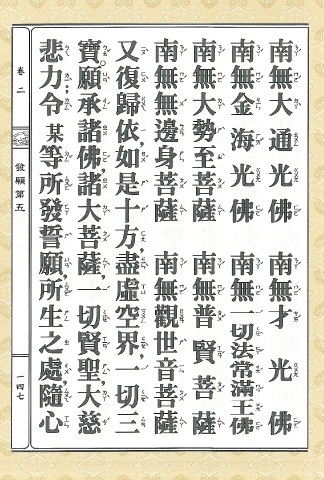 南無大通光佛　南無才光佛
南無金海光佛　南無一切法常滿王佛
南無大勢至菩薩　南無普賢菩薩
南無無邊身菩薩　南無觀世音菩薩
又復歸依，如是十方，盡虛空界，一切三
寶。願承諸佛，諸大菩薩，一切賢聖，大慈
悲力，令某等所發誓願，所生之處，隨心
卷二
發願第五
一四七